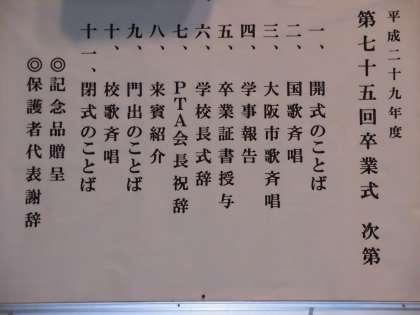 平成二十九年度
第七十五回卒業式 次第
一、開式のことば
二、国歌斉唱
三、大阪市歌斉唱
四、学事報告
五、卒業証書授与
六、学校長式辞
七、PTA会長祝辞
八、来賓紹介
九、門出のことば
十、校歌斉唱
十一、閉式のことば
◎記念品贈呈
◎保護者代表謝辞